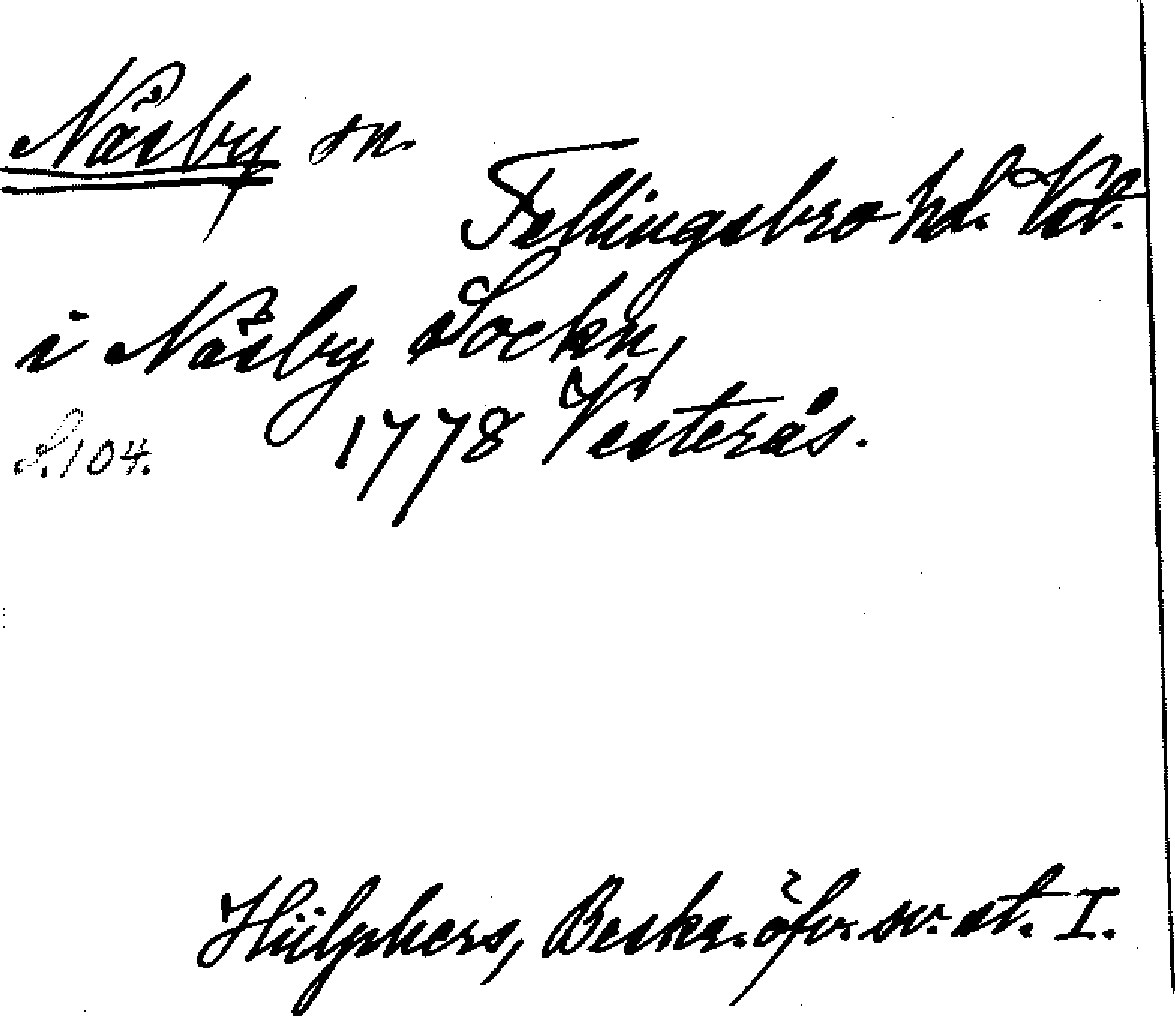 Näsby sn.
Fellingsbro hd. Vstl.
i Näsby Sockn,
1778 Vesterås.
S. 104.
Hülphers, Beskr. öfv. sv. st. I.